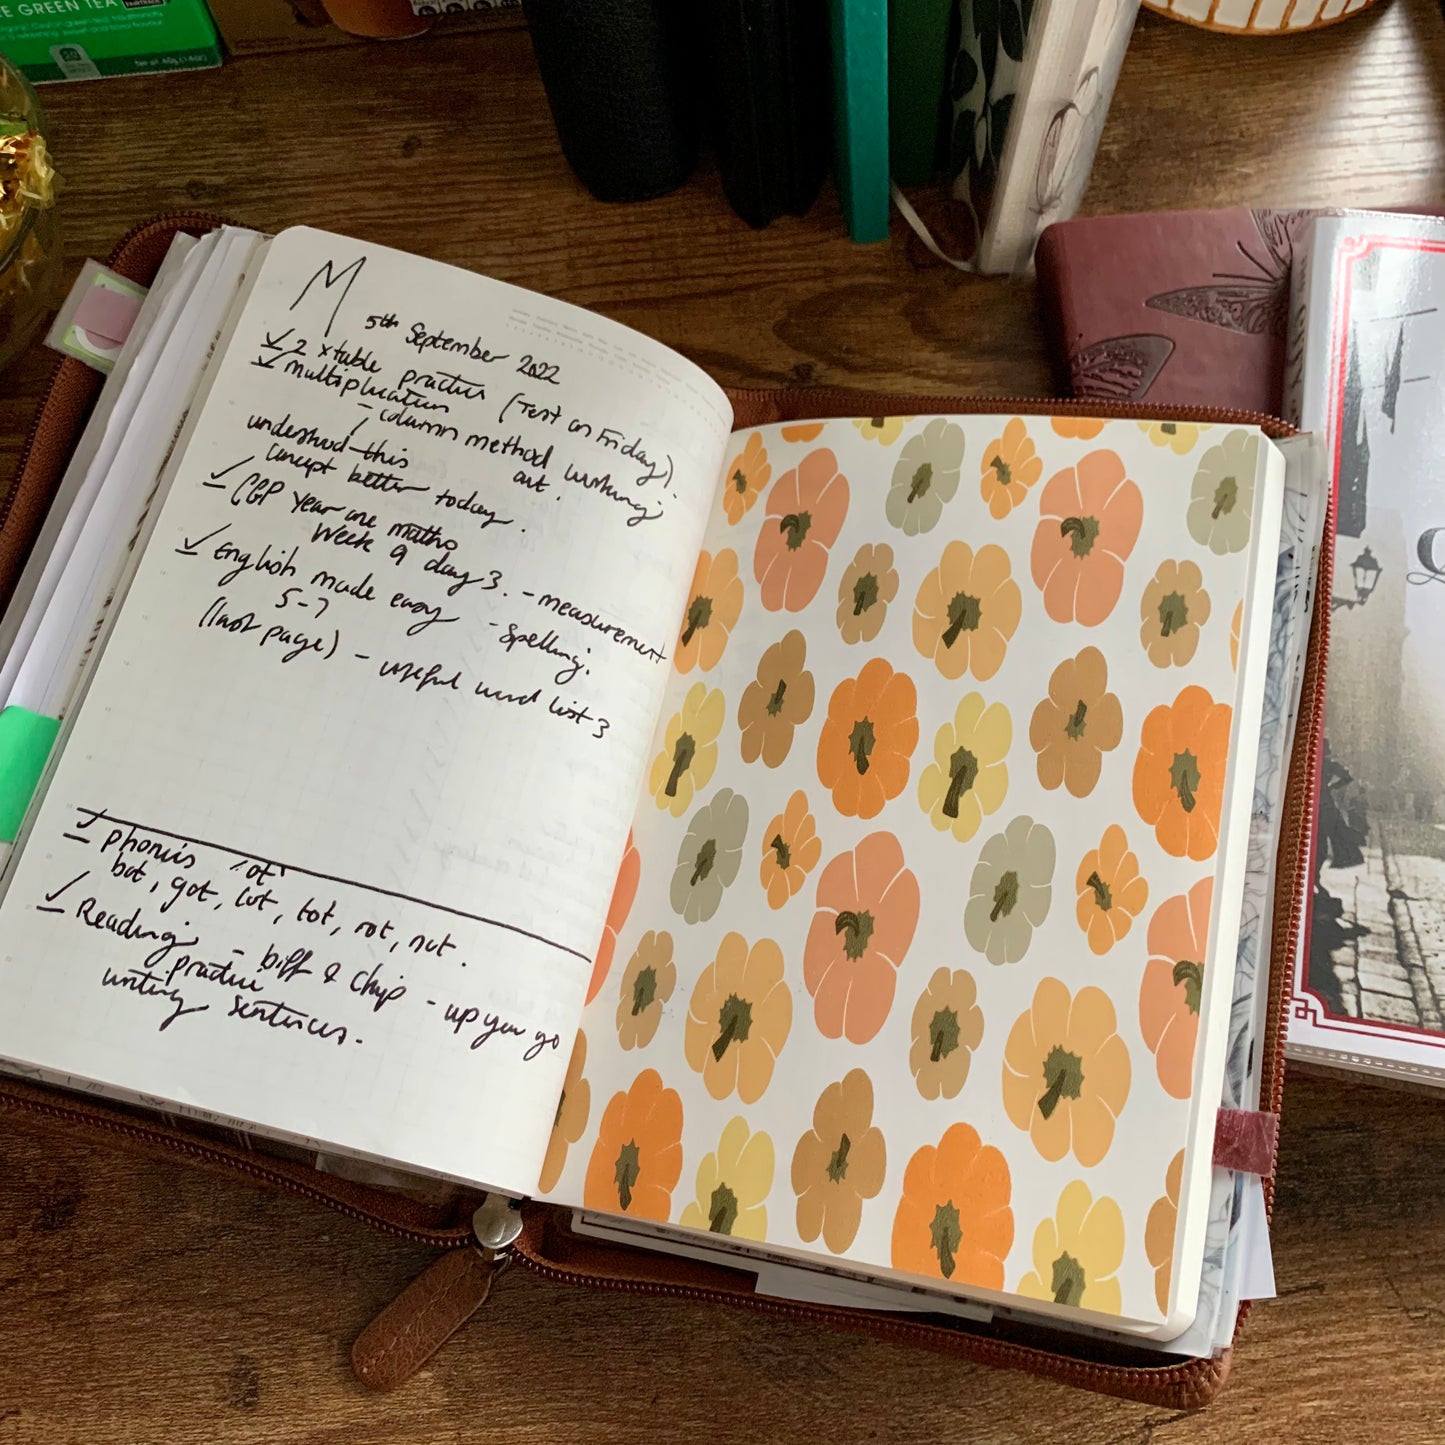 E GREEN TEA
FAIRTRADE
M
5th September 2022
✓ 2 x table practice (Test on Friday)
✓ multiplication
- column method working
out.
understood this
concept better today.
✓ CGP Year one maths
Week 9 day 3. - measurement
✓ English made easy - Spelling:
5-7
(last page) - useful word list 3
✓ phonics 'ot'
bot, got, lot, tot, rot, not.
✓ Reading, - biff & Chip - up you go
practice
writing sentences.